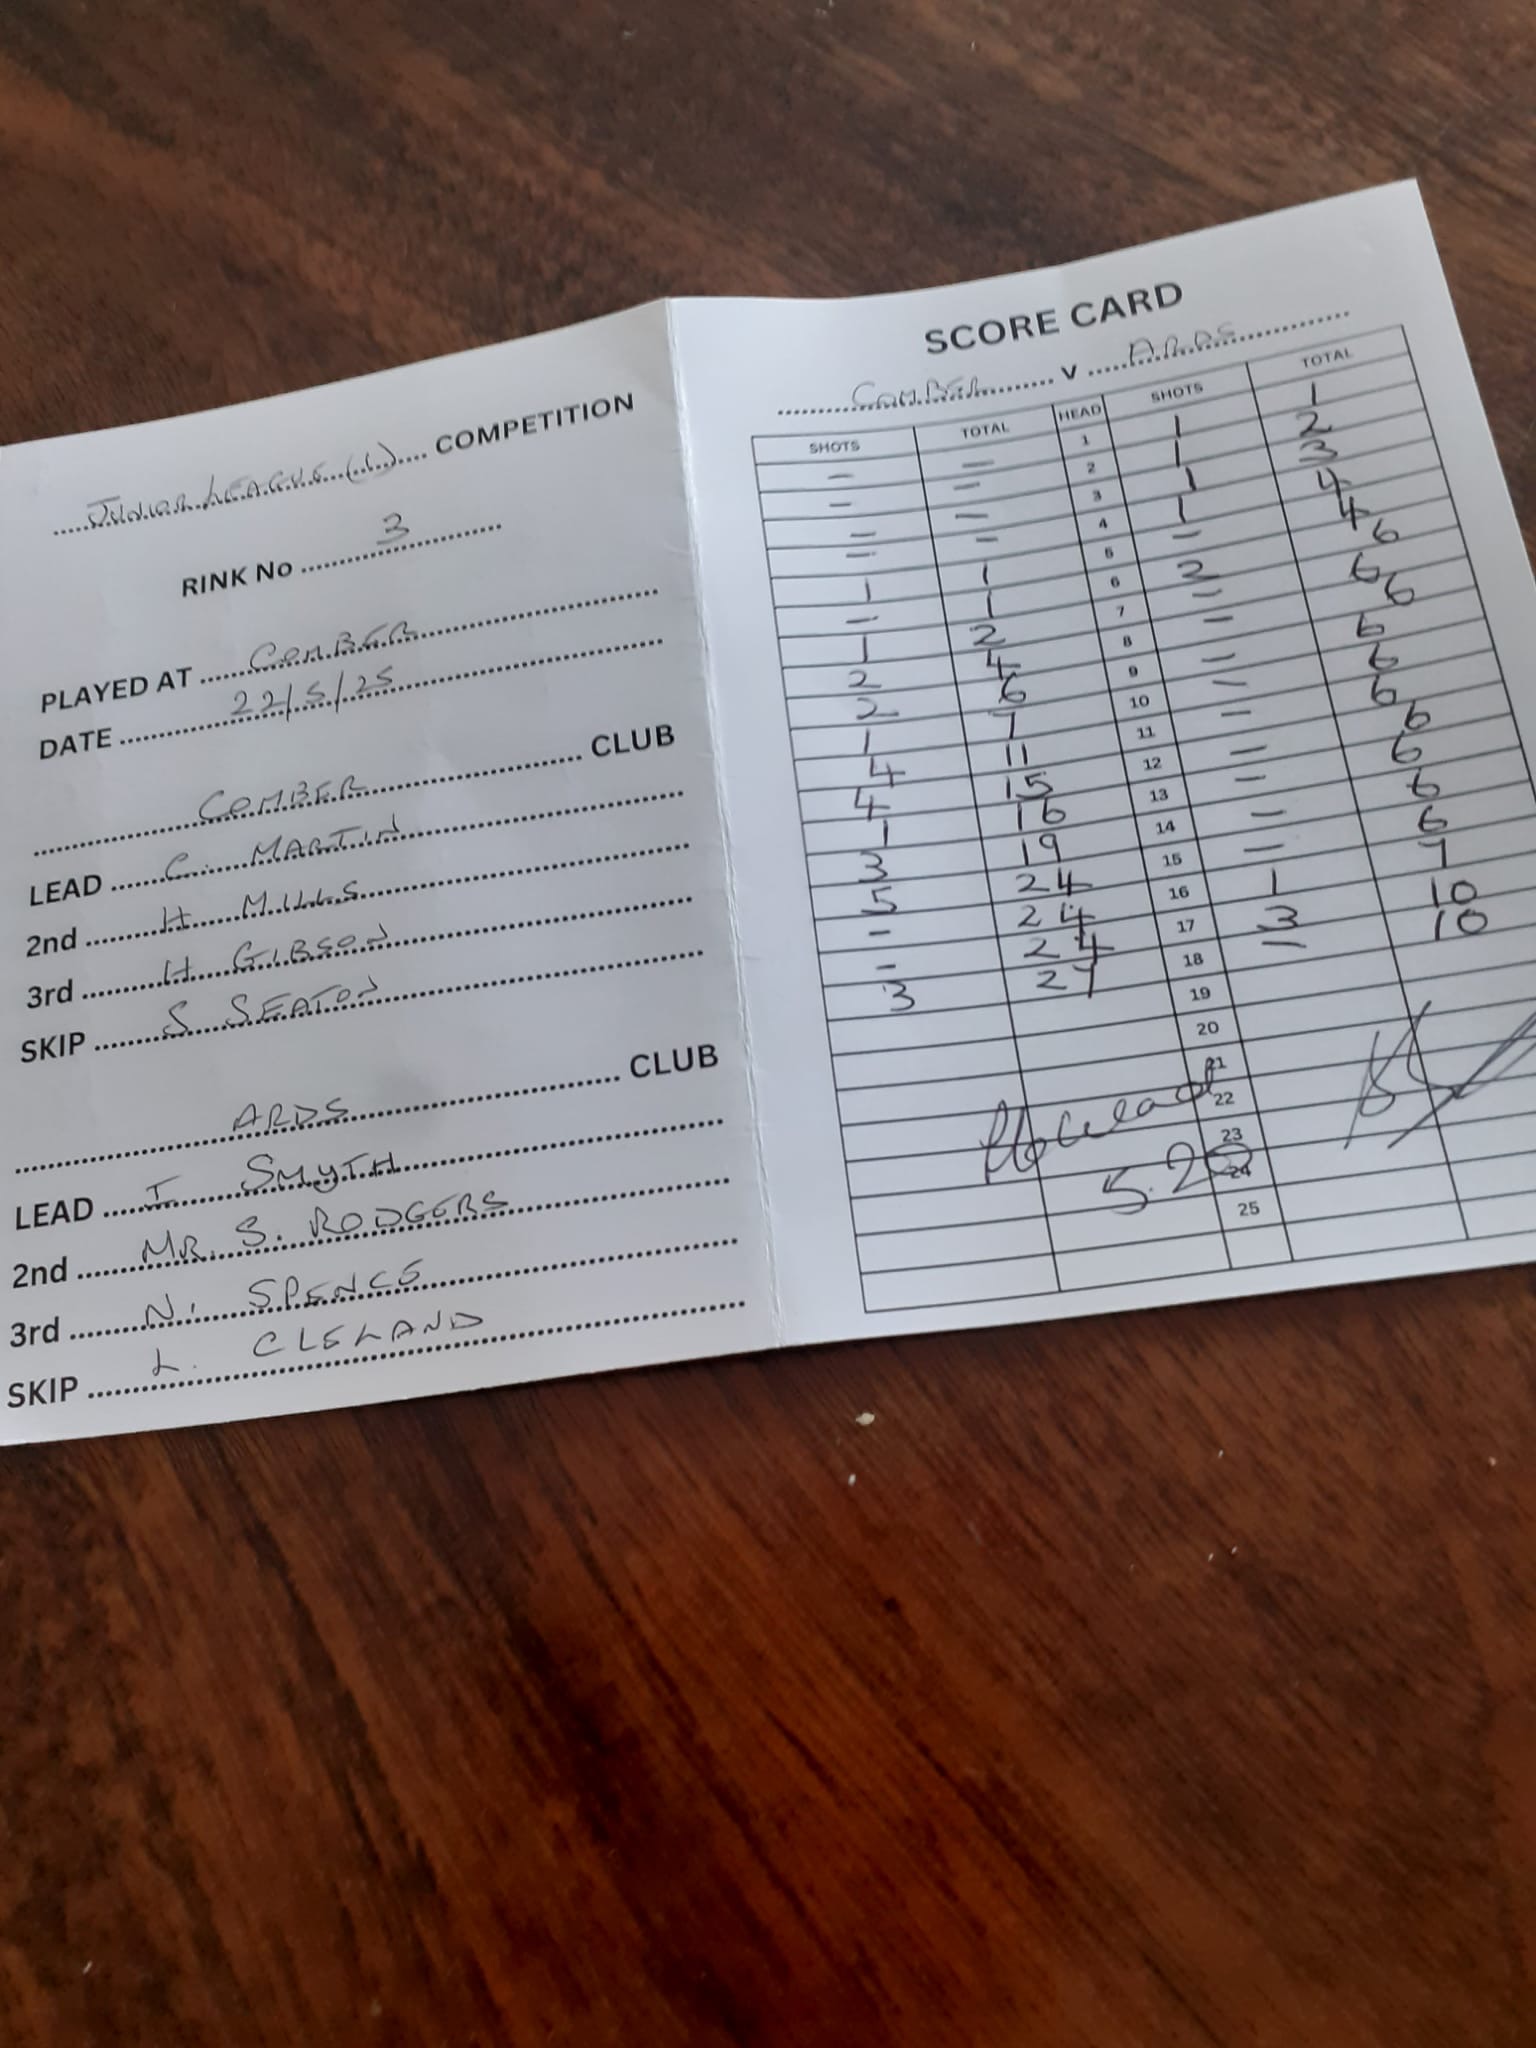 JUNIOR LEAGUE (1) COMPETITION
RINK No 3
PLAYED AT COMBER
DATE 22/5/25
COMBER CLUB
LEAD C. MARTIN
2nd H MILLS
3rd H GIBSON
SKIP S SEATON
ARDS CLUB
LEAD I SMYTH
2nd MR. S. RODGERS
3rd N. SPENCE
SKIP L. CLELAND
SCORE CARD
COMBER v ARDS
SHOTS TOTAL HEAD SHOTS TOTAL
- - 1 1 1
- - 2 1 2
- - 3 1 3
- - 4 1 4
1 1 5 - 4
- 1 6 2 6
1 2 7 - 6
2 4 8 - 6
2 6 9 - 6
1 7 10 - 6
4 11 11 - 6
4 15 12 - 6
1 16 13 - 6
3 19 14 - 6
5 24 15 - 6
- 24 16 1 7
- 24 17 3 10
3 27 18 - 10
19
20
21
22
23
5.20 24
25